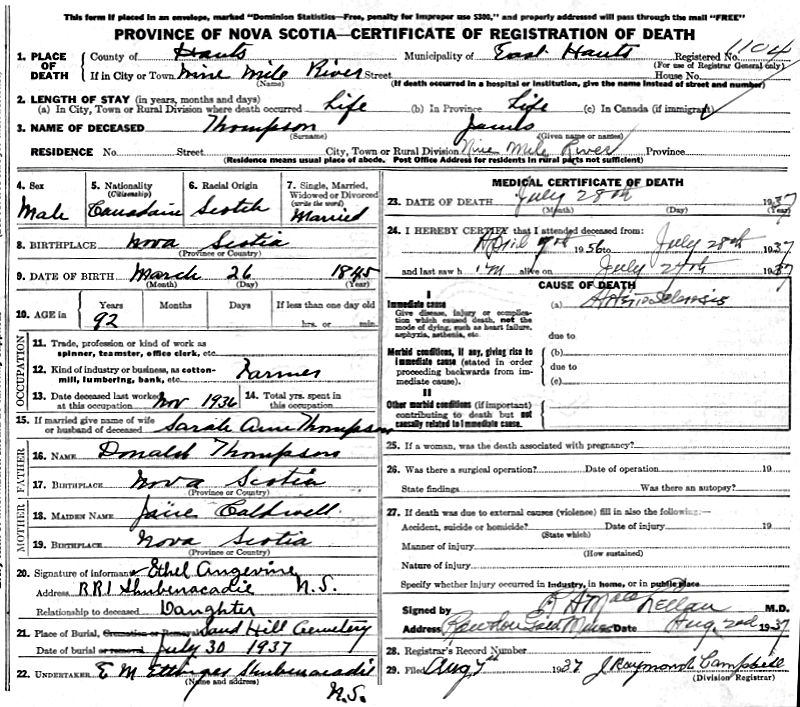 This form if placed in an envelope, marked "Dominion Statistics—Free, penalty for improper use $300," and properly addressed will pass through the mail "FREE"
PROVINCE OF NOVA SCOTIA—CERTIFICATE OF REGISTRATION OF DEATH
1. PLACE OF DEATH County of Hants Municipality of East Hants Registered No. 1104
(For use of Registrar General only)
If in City or Town Nine Mile River Street House No.
(Name) (If death occurred in a hospital or institution, give the name instead of street and number)
2. LENGTH OF STAY (in years, months and days)
(a) In City, Town or Rural Division where death occurred Life (b) In Province Life (c) In Canada (if immigrant)
3. NAME OF DECEASED Thompson James
(Surname) (Given name or names)
RESIDENCE No. Street City, Town or Rural Division Nine Mile River Province
(Residence means usual place of abode. Post Office Address for residents in rural parts not sufficient)
4. Sex 5. Nationality (Citizenship) 6. Racial Origin 7. Single, Married, Widowed or Divorced (write the word)
Male Canadain Scotch Married
8. BIRTHPLACE Nova Scotia
(Province or Country)
9. DATE OF BIRTH March 26 1845
(Month) (Day) (Year)
10. AGE in Years Months Days If less than one day old
92 hrs. or min.
OCCUPATION
11. Trade, profession or kind of work as spinner, teamster, office clerk, etc.
12. Kind of industry or business, as cotton-mill, lumbering, bank, etc. Farmer
13. Date deceased last worked at this occupation Nov 1936 14. Total yrs. spent in this occupation
15. If married give name of wife or husband of deceased Sarah Ann Thompson
FATHER
16. NAME Donald Thompson
17. BIRTHPLACE Nova Scotia
(Province or Country)
MOTHER
18. MAIDEN NAME Jane Caldwell
19. BIRTHPLACE Nova Scotia
(Province or Country)
20. Signature of informant Ethel Angevine
Address R.R.1 Shubenacadie N.S.
Relationship to deceased Daughter
21. Place of Burial, Cremation or Removal Sand Hill Cemetery
Date of burial or removal July 30 1937
22. UNDERTAKER E M Ettinger Shubenacadie
(Name and address) N.S.
MEDICAL CERTIFICATE OF DEATH
23. DATE OF DEATH July 28th 1937
(Month) (Day) (Year)
24. I HEREBY CERTIFY that I attended deceased from:
April 1956 to July 28th 1937
and last saw h im alive on July 27th 1937
CAUSE OF DEATH
I
Immediate cause (a)
Give disease, injury or complication which caused death, not the mode of dying, such as heart failure, asphyxia, asthenia, etc.
due to
Morbid conditions, if any, giving rise to immediate cause (stated in order proceeding backwards from immediate cause).
(b)
due to
(c)
II
Other morbid conditions (if important) contributing to death but not causally related to immediate cause.
25. If a woman, was the death associated with pregnancy?
26. Was there a surgical operation? Date of operation 19
State findings Was there an autopsy?
27. If death was due to external causes (violence) fill in also the following:—
Accident, suicide or homicide? Date of injury 19
(State which)
Manner of injury
(How sustained)
Nature of injury
Specify whether injury occurred in industry, in home, or in public place
Signed by MacLellan M.D.
Address Rawdon Gold Mines Date Aug 2nd 1937
28. Registrar's Record Number
29. Filed Aug 1937 J Raymond Campbell
(Division Registrar)